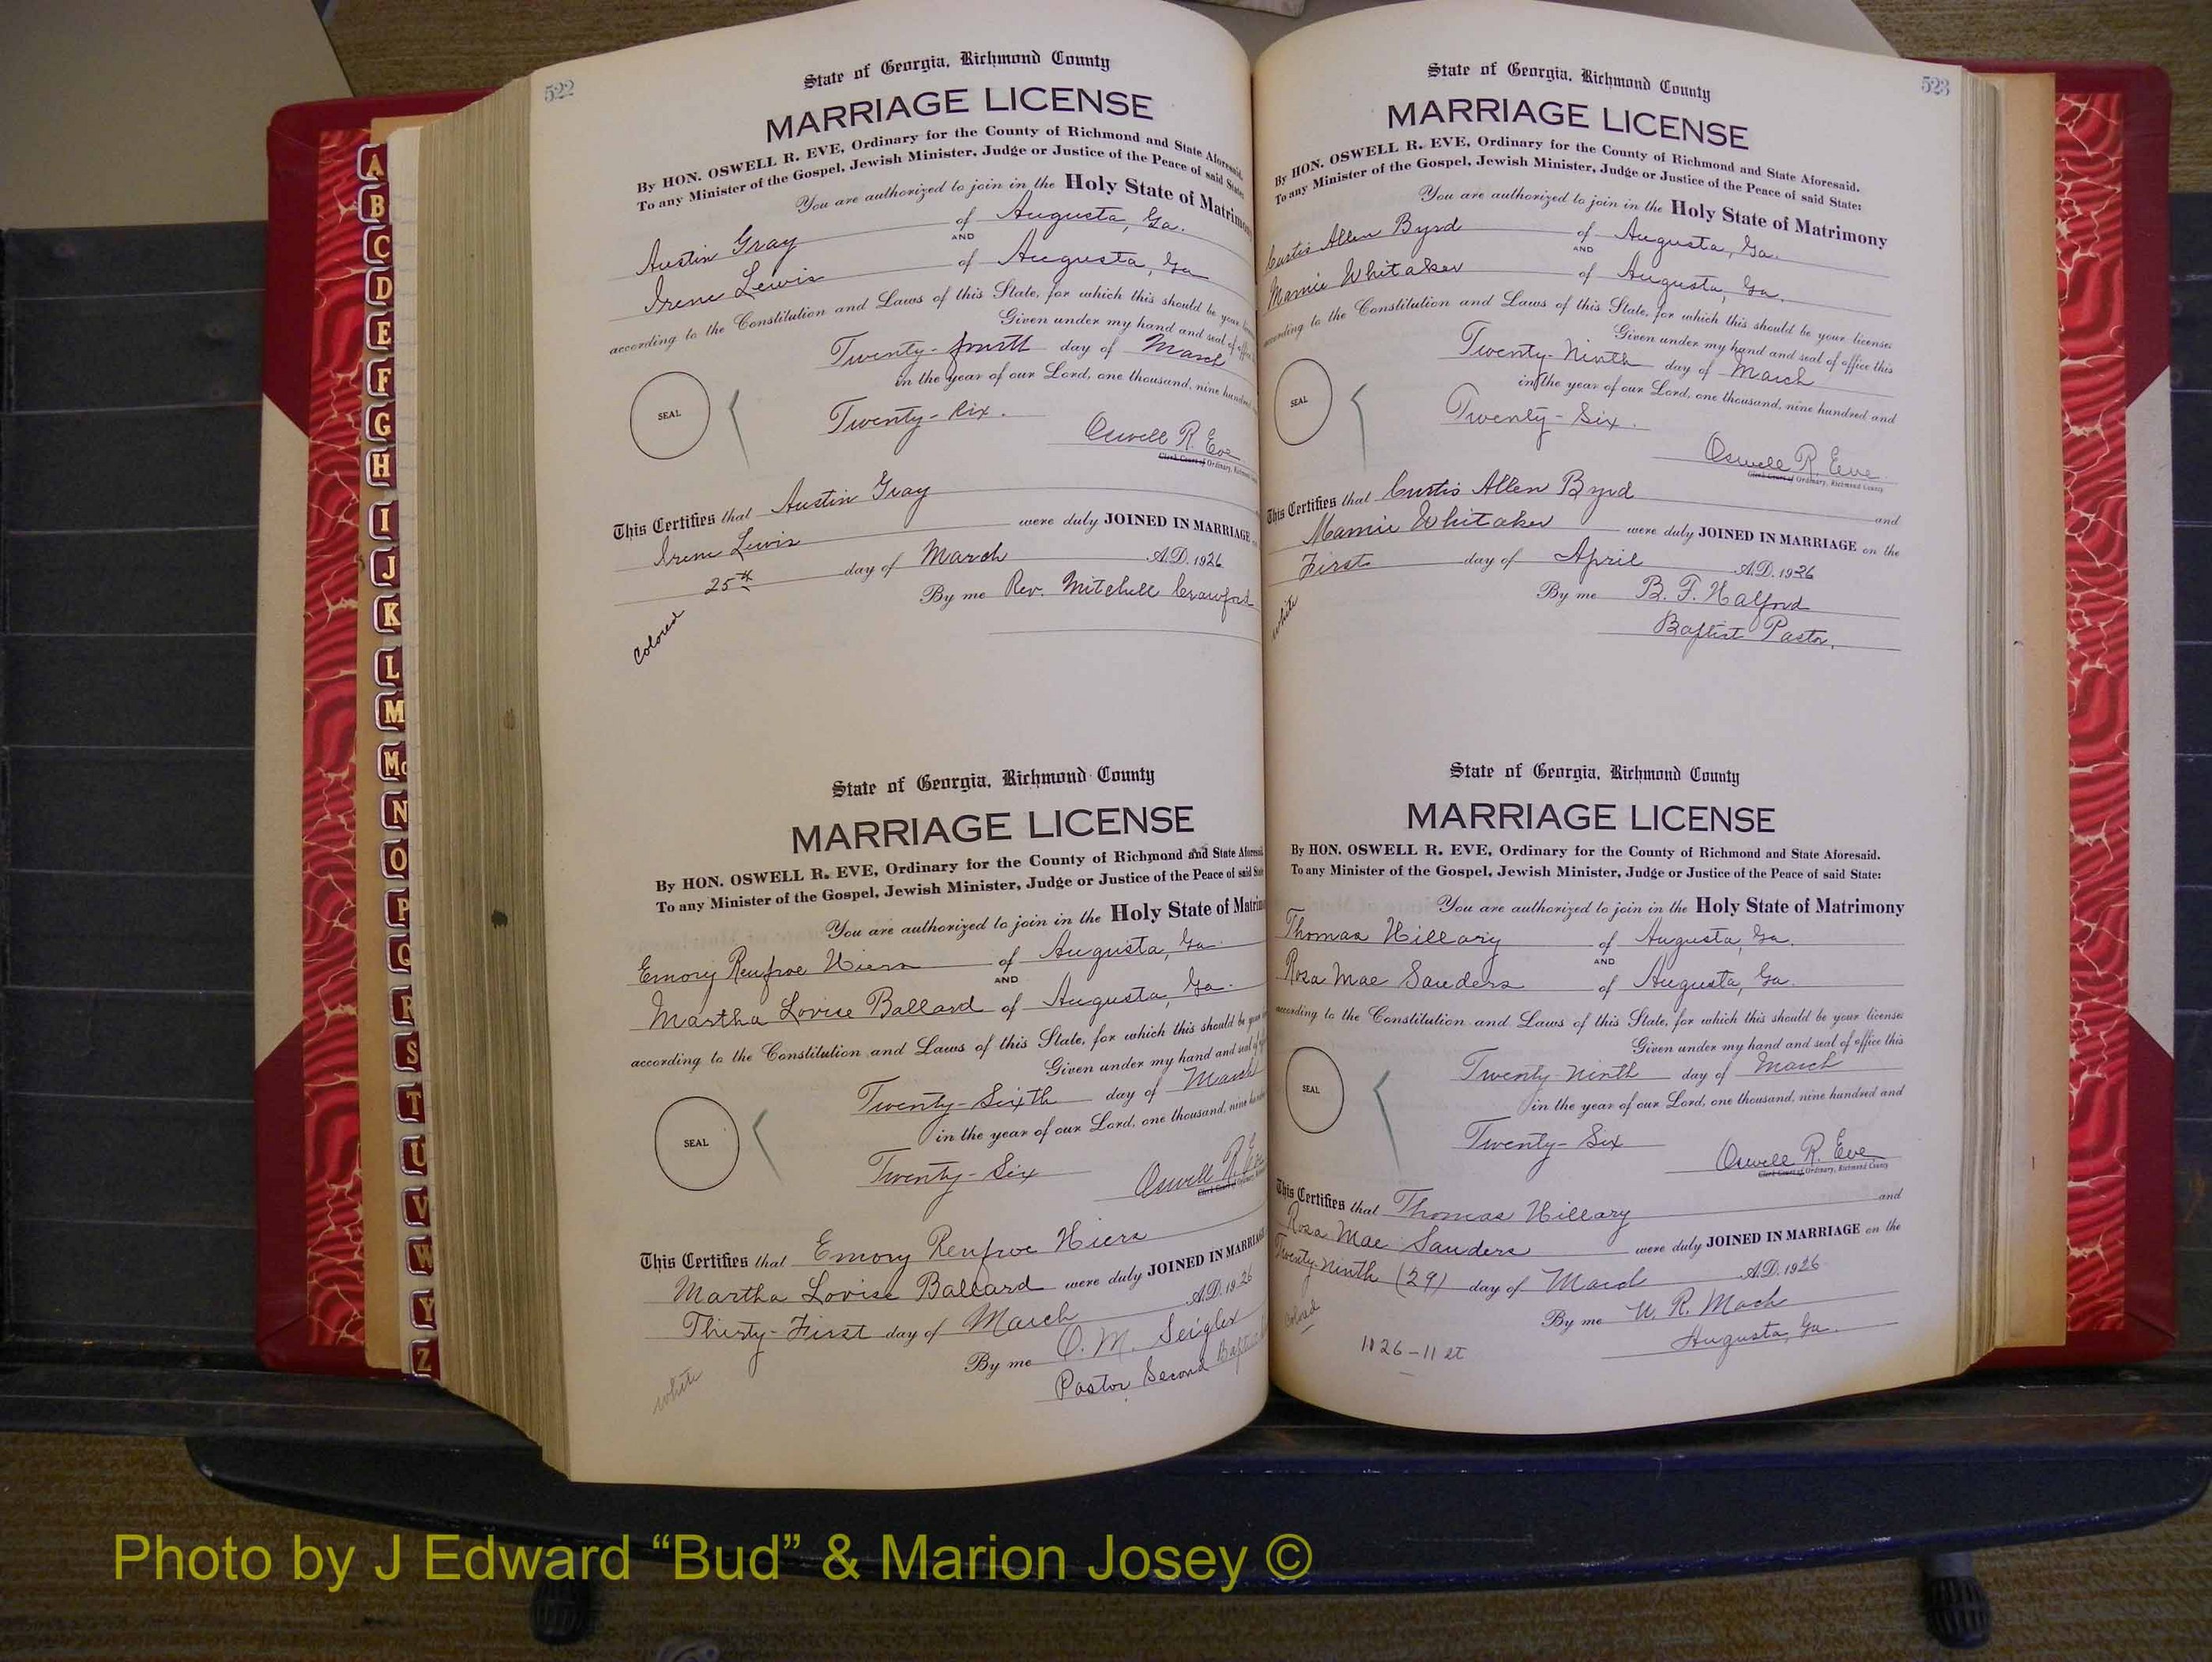 A
B
C
D
E
F
G
H
I
J
K
L
M
Mc
N
O
P
Q
R
S
T
U
V
W
Y
Z
522
State of Georgia, Richmond County
MARRIAGE LICENSE
By HON. OSWELL R. EVE, Ordinary for the County of Richmond and State Aforesaid.
To any Minister of the Gospel, Jewish Minister, Judge or Justice of the Peace of said State:
You are authorized to join in the Holy State of Matrimony
Austin Gray of Augusta, Ga.
AND
Irene Lewis of Augusta, Ga
according to the Constitution and Laws of this State, for which this should be your
Given under my hand and seal of
Twenty-fourth day of March
in the year of our Lord, one thousand, nine hundred
SEAL
Twenty-Six.
Oswell R. Eve
Clerk Court of Ordinary, Richmond
This Certifies that Austin Gray
Irene Lewis were duly JOINED IN MARRIAGE
25th day of March A.D. 1926
By me Rev. Mitchell Crawford
Colored
State of Georgia, Richmond County
MARRIAGE LICENSE
By HON. OSWELL R. EVE, Ordinary for the County of Richmond and State Aforesaid
To any Minister of the Gospel, Jewish Minister, Judge or Justice of the Peace of said
You are authorized to join in the Holy State of
Emory Renfroe Hiers of Augusta, Ga.
AND
Martha Lovise Ballard of Augusta, Ga.
according to the Constitution and Laws of this State, for which this should be your
Given under my hand and seal
Twenty-Sixth day of March
in the year of our Lord, one thousand, nine
SEAL
Twenty-Six
Oswell R.
Clerk Court of
This Certifies that Emory Renfroe Hiers
Martha Lovise Ballard were duly JOINED IN MARRIAGE
Thirty-First day of March A.D. 1926
By me O. M. Seigler
Pastor Second
white
523
State of Georgia, Richmond County
MARRIAGE LICENSE
By HON. OSWELL R. EVE, Ordinary for the County of Richmond and State Aforesaid.
To any Minister of the Gospel, Jewish Minister, Judge or Justice of the Peace of said State:
You are authorized to join in the Holy State of Matrimony
Curtis Allen Byrd of Augusta, Ga.
AND
Mamie Whitaker of Augusta, Ga.
according to the Constitution and Laws of this State, for which this should be your license
Given under my hand and seal of office this
Twenty-Ninth day of March
in the year of our Lord, one thousand, nine hundred and
SEAL
Twenty-Six.
Oswell R. Eve
Clerk Court of Ordinary, Richmond County
This Certifies that Curtis Allen Byrd and
Mamie Whitaker were duly JOINED IN MARRIAGE on the
First day of April A.D. 1926
By me B. F. Halford
Baptist Pastor.
white
State of Georgia, Richmond County
MARRIAGE LICENSE
By HON. OSWELL R. EVE, Ordinary for the County of Richmond and State Aforesaid.
To any Minister of the Gospel, Jewish Minister, Judge or Justice of the Peace of said State:
You are authorized to join in the Holy State of Matrimony
Thomas Hillary of Augusta, Ga.
AND
Rosa Mae Sanders of Augusta, Ga.
according to the Constitution and Laws of this State, for which this should be your license
Given under my hand and seal of office this
Twenty-ninth day of March
in the year of our Lord, one thousand, nine hundred and
SEAL
Twenty-Six
Oswell R. Eve
Clerk Court of Ordinary, Richmond County
This Certifies that Thomas Hillary and
Rosa Mae Sanders were duly JOINED IN MARRIAGE on the
Twenty-ninth (29) day of March A.D. 1926
By me R. Mack
Augusta, Ga.
Colored
1126-11
Photo by J Edward “Bud” & Marion Josey ©